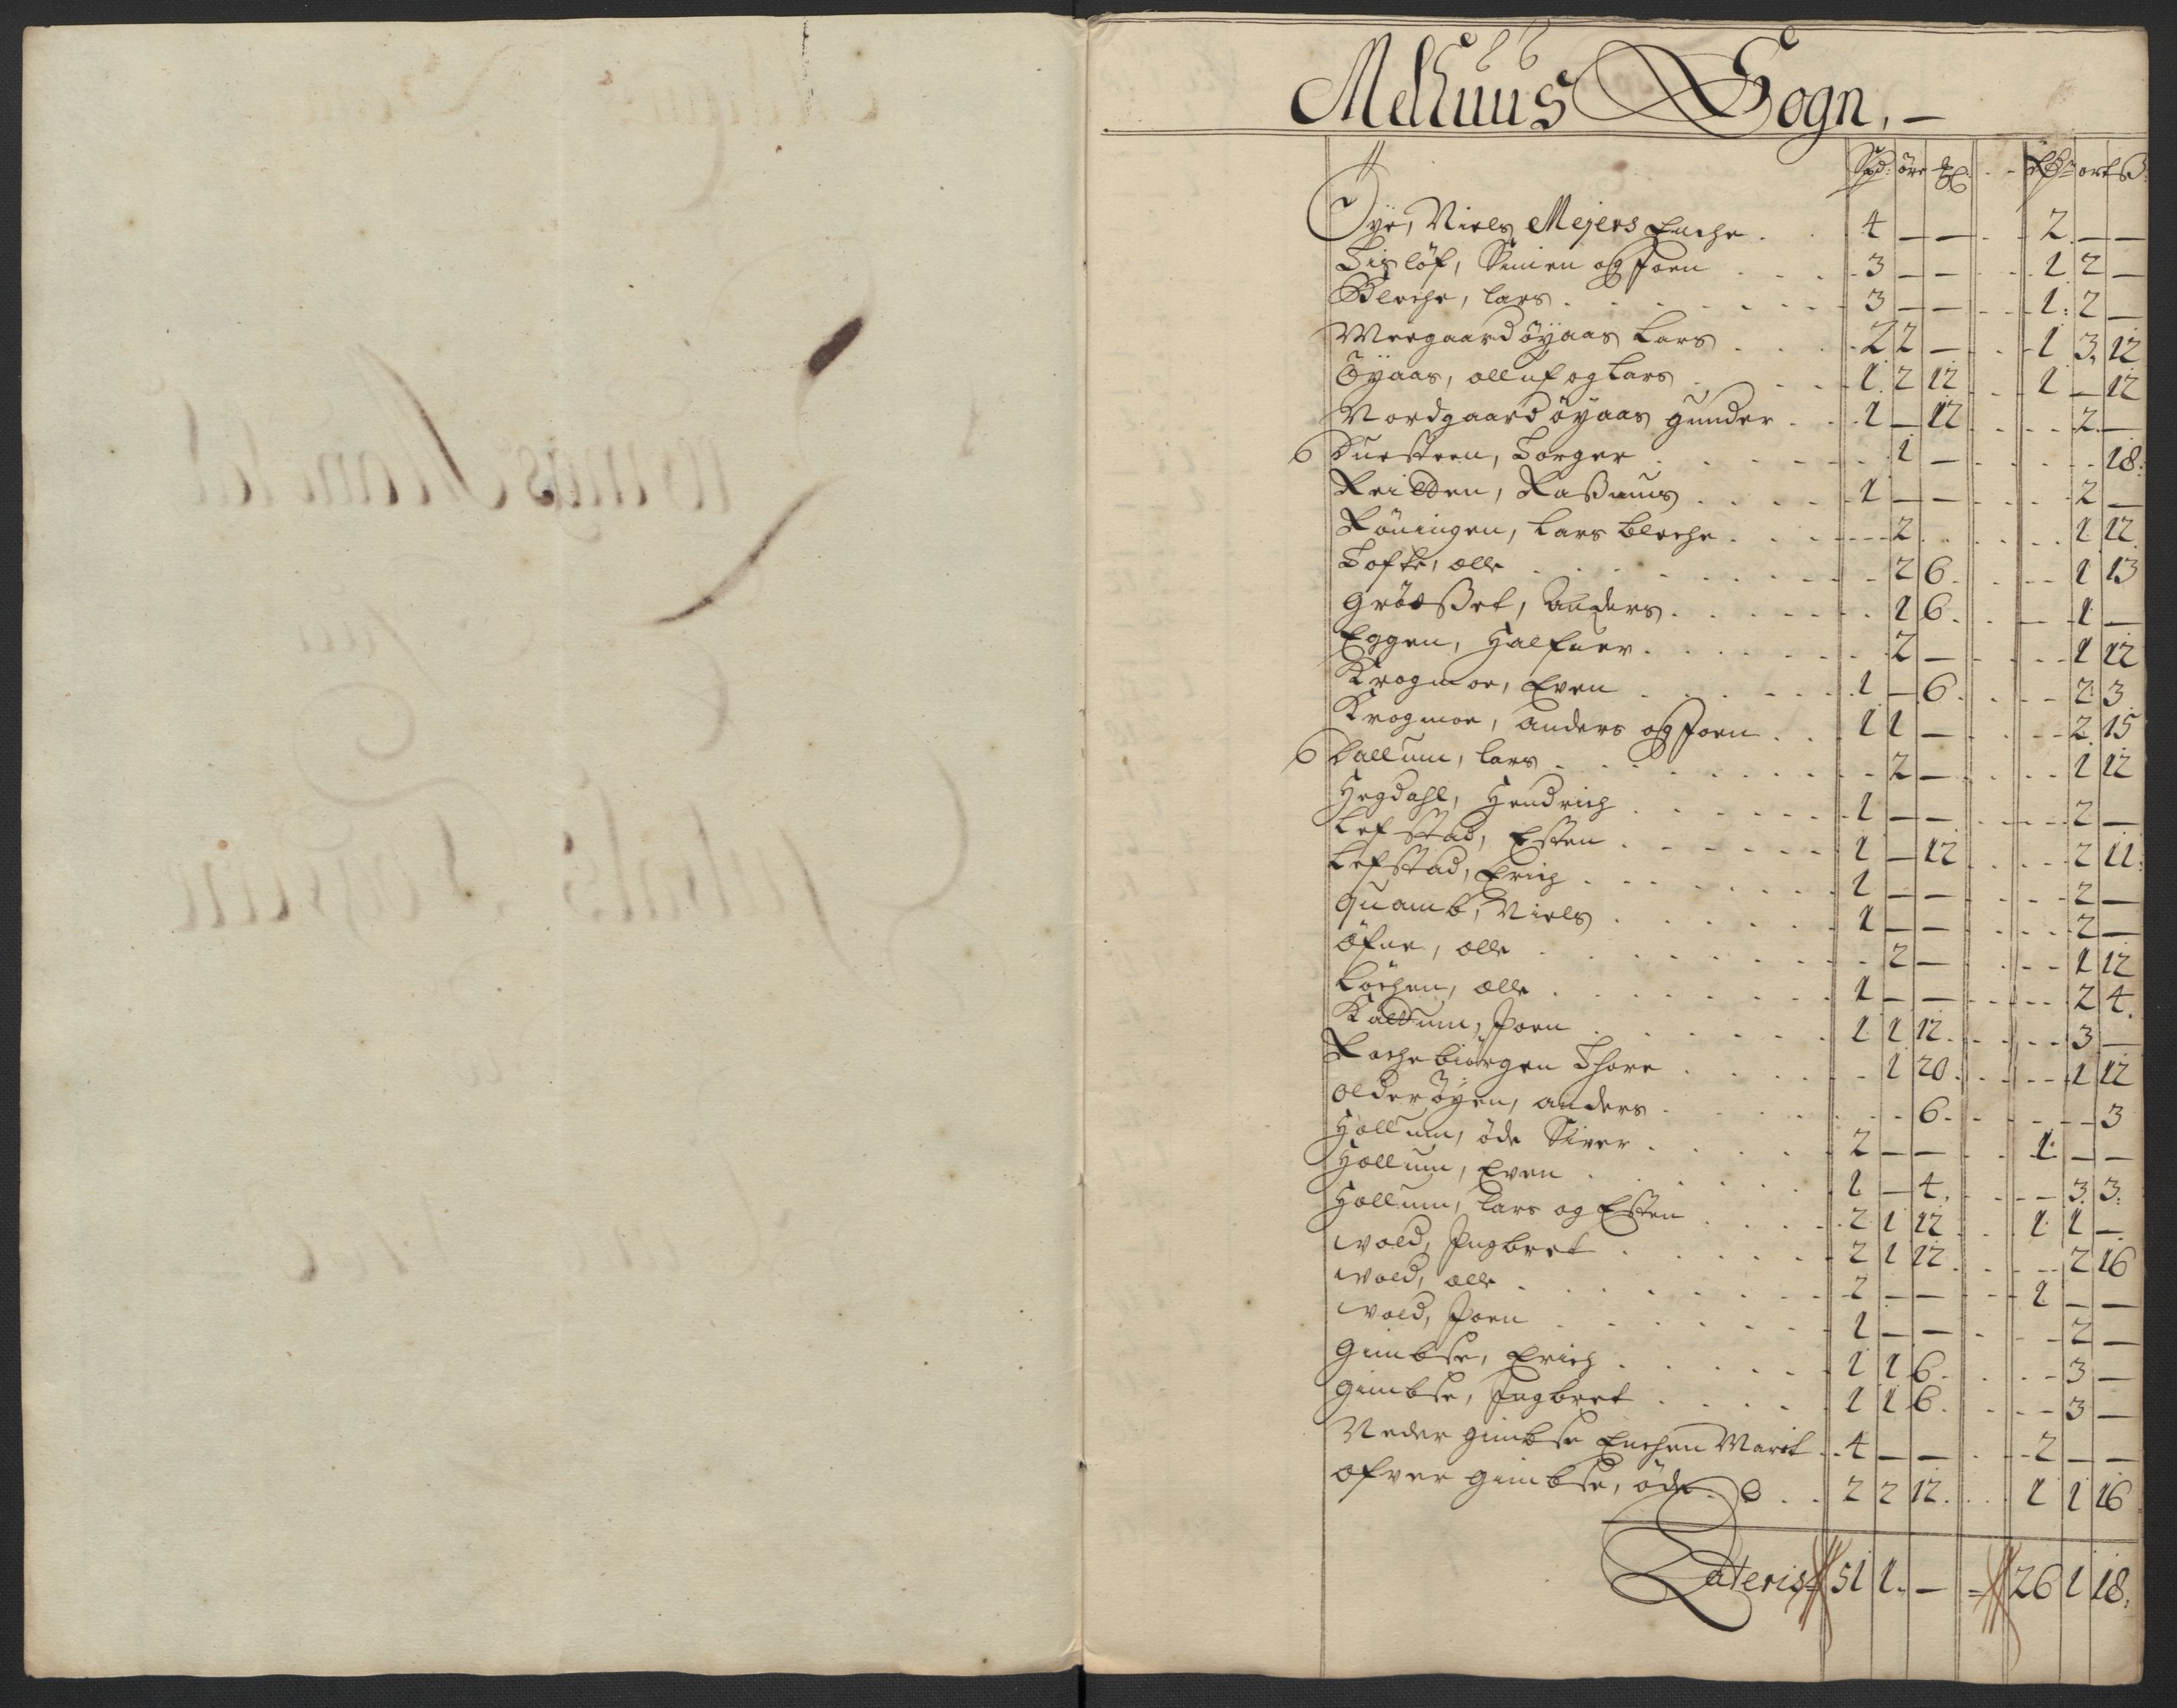 Melhuus Sogn,
Spd: öre ... Rdr ort ß
Öye, Niels Mejers Enche . . 4 — — . . 2 — —
Siglöf, Simen og Joen . . 3 — — . . 1 2 —
Bleche, Lars . . 3 — — . . 1 2 —
Meegaard öyaas Lars . . 2 2 — . . 1 3 12
Öyaas, olluf og Lars . . 1 2 12 . . 1 — 12
Nordgaard öyaas gunder . . 1 — 12 . . 2 —
6 Duesteen, Torger . . 1 — . . 18
Reitten, Rasmus . . 1 — — . . 2 —
Röningen, Lars bleche . . 2 . . 1 12
Tofte, olle . . 2 6 . . 1 13
gröedßet, anders . . 1 6 . . 1 —
Eggen, Halfuer . . 2 — . . 1 12
Krogmoe, Even . . 1 — 6 . . 2 3
Krogmoe, anders og Joen . . 1 1 — . . 2 15
6 Dallum, Lars . . 2 — . . 1 12
Hegdahl, Hendrich . . 1 — — . . 2 —
Lefstad, Esten . . 1 — 12 . . 2 11
Lefstad, Erich . . 1 — — . . 2 —
quamb, Niels . . 1 — — . . 2 —
öfne, olle . . 2 — . . 1 12
Löchen, olle . . 1 — — . . 2 4
Kaldum, Joen . . 1 1 12 . . 3 —
Rochebiörgen Thore . . 1 20 . . 1 12
olderöyen, anders . . 6 . . 3
Hollum, öde Siver . . 2 — — . . 1 — —
Hollum, Even . . 1 — 4 . . 3 3
Hollum, Lars og Esten . . 2 1 12 . . 1 1 —
vold, Ingbret . . 2 1 12 . . 2 16
vold, olle . . 2 — — . . 1 — —
vold, Joen . . 1 — — . . 2 —
gimbse, Erich . . 1 1 6 . . 3 —
gimbse, Ingbret . . 1 1 6 . . 3 —
Neder gimbse Enchen Marit . . 4 — — . . 2 — —
ofver gimbse, öde . . 2 2 12 . . 1 1 16
Lateris 51 1 — = 26 1 18